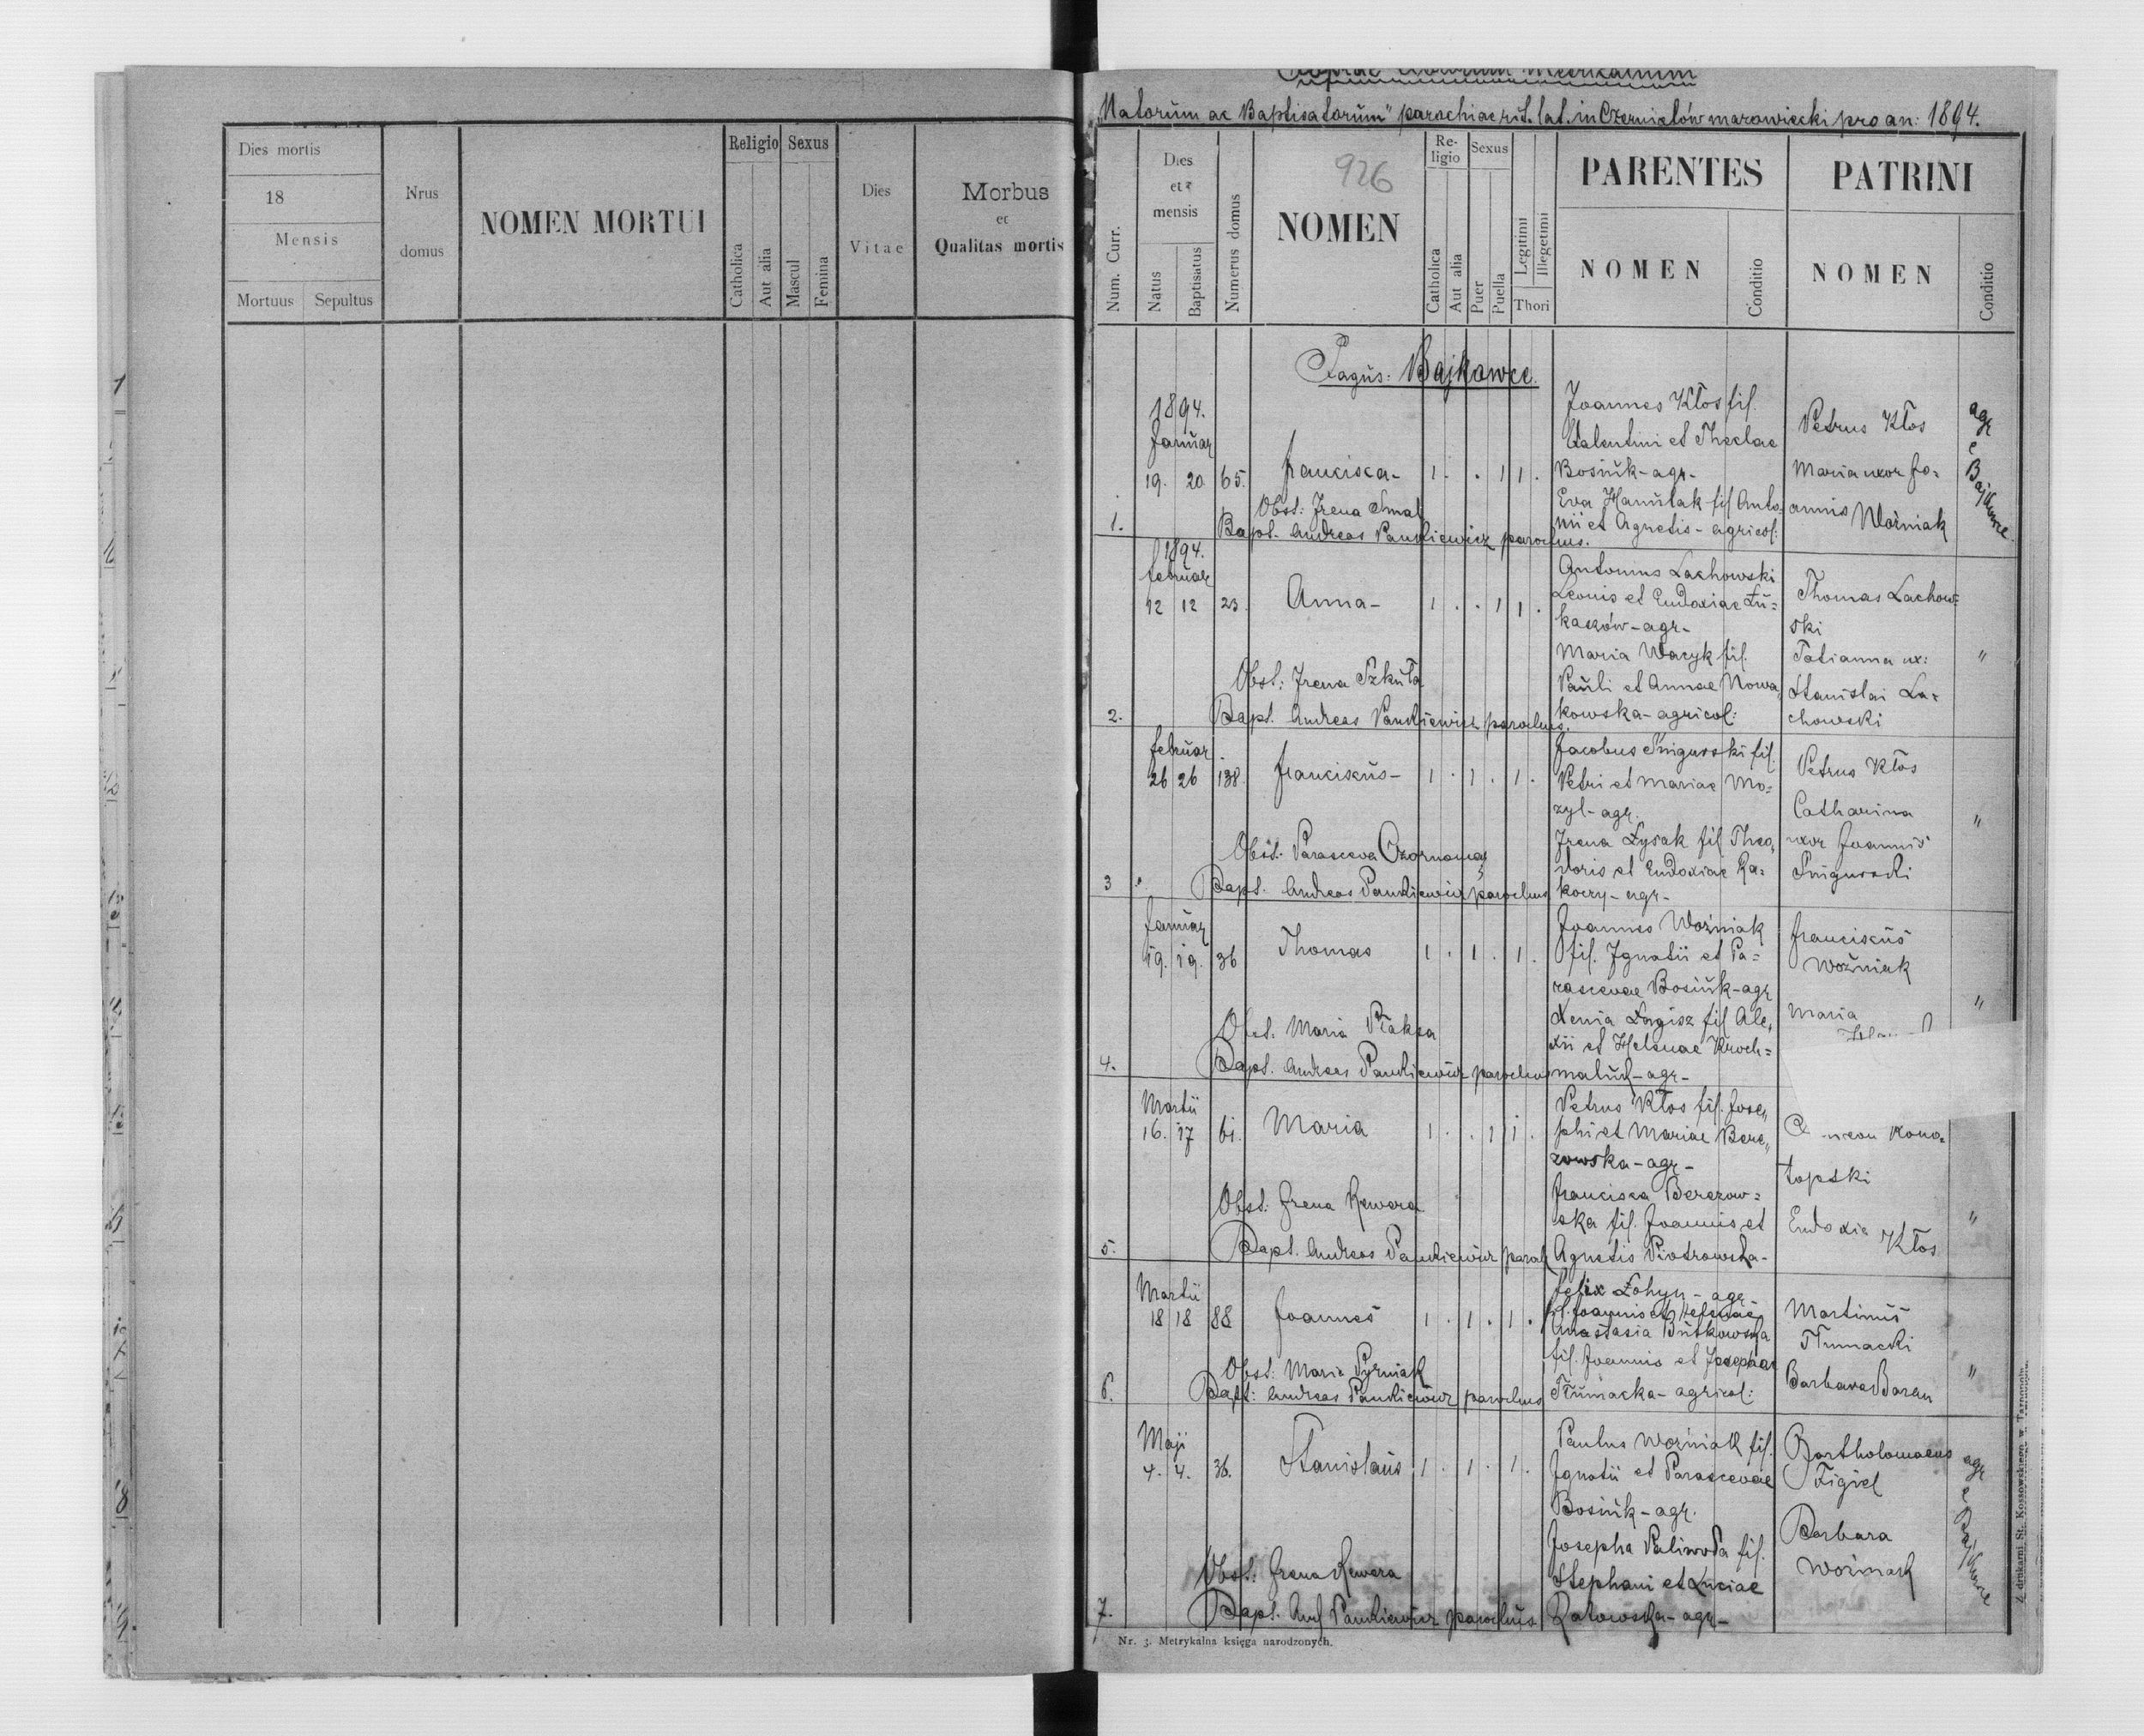 Dies mortis
18
Mensis
Mortuus Sepultus
Nrus
domus
NOMEN MORTUI
Religio Sexus
Catholica
Aut alia
Mascul
Femina
Dies
Vitae
Morbus
et
Qualitas mortis
"Natorum ac Baptisatorum" parochiae rit. lat. in Czernielów marowiecki pro an: 1894.
Num. Curr.
Dies
et
mensis
Natus
Baptisatus
Numerus domus
926
NOMEN
Re-
ligio
Sexus
Catholica
Aut alia
Puer
Puella
Legitimi
Illegetimi
Thori
PARENTES
NOMEN
Conditio
PATRINI
NOMEN
Conditio
Pagus: Bajkowce.
1894.
Januar
19. 20 65. Francisca - 1 . . 1 1 .
Obst: Irena
1. Bapt. Andreas Pankiewicz parochus.
Joannes Kłos fil.
Valentini et Theclae
Bosiuk - agr -
Eva Hanulak fil Anto,
nii et Agnetis - agricol:
Petrus Kłos
Maria uxor Jo=
annis Woźniak
agr
e
Bajkowce
1894.
Februar
12 12 23. Anna - 1 . . 1 1 .
Obst: Irena Szkuta
2. Bapt. Andreas Pankiewicz parochus.
Antonius Lachowski
Leonis et Eudoxiae Łu=
kaszów - agr -
Maria Wacyk fil.
Pauli et Annae Nowa,
kowska - agricol:
Thomas Lachow=
ski
Tatianna ux:
Stanislai La=
chowski
"
Februar
26 26 138. Franciscus - 1 . 1 . 1 .
Obst: Parasceva
3 Bapt. Andreas Pankiewicz parochus
Jacobus Śnigurski fil.
Petri et Mariae Mo=
zyl - agr.
Irena Łysak fil Theo,
doris et Eudoxiae Ra=
koczy - agr -
Petrus Kłos
Catharina
uxor Joannis
Śnigurski
"
Januar
19. 19. 36 Thomas 1 . 1 . 1 .
Obst. Maria Płaksa
4. Bapt. Andreas Pankiewicz parochus
Joannes Woźniak
fil. Ignatii et Pa=
rascevae Bosiuk - agr
Xenia Łagisz fil Ale,
xii et Helenae Kroch=
maluk - agr -
Franciscus
Woźniak
Maria
"
Martii
16. 17 61. Maria 1 . . 1 1 .
Obst: Irena Rewera
5. Bapt. Andreas Pankiewicz paroch
Petrus Kłos fil. Jose,
phi et Mariae Bere,
zowska - agr -
Francisca Berezow=
ska fil. Joannis et
Agnetis Piotrowska -
Kono=
topski
Eudoxia Kłos
"
Martii
18 18 88 Joannes 1 . 1 . 1 .
Obst: Maria Pyrniak
6. Bapt: Andreas Pankiewicz parochus
Felix Łohyn - agr -
fil. Joannis et Helenae
Anastasia Butkowska
fil. Joannis et Josephae
Tłumacka - agricol:
Martinus
Tłumacki
Barbara Baran
"
Maji
4. 4. 36. Stanislaus 1 . 1 . 1 .
Obst: Irena Rewera
7. Bapt. And Pankiewicz parochus
Paulus Woźniak fil.
Ignatii et Parascevae
Bosiuk - agr.
Josepha Paliwoda fil.
Stephani et Luciae
Ratowska - agr -
Bartholomaeus
Figiel
Barbara
Woźniak
agr
e Bajkowce
Nr. 3. Metrykalna księga narodzonych.
Z drukarni St. Kossowskiego w Tarnopolu.